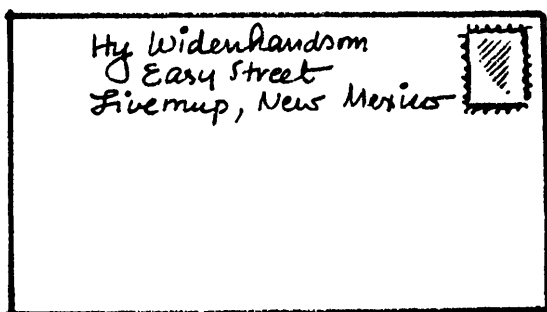 Hy Widenhandsom
Easy Street
Livemup, New Mexico